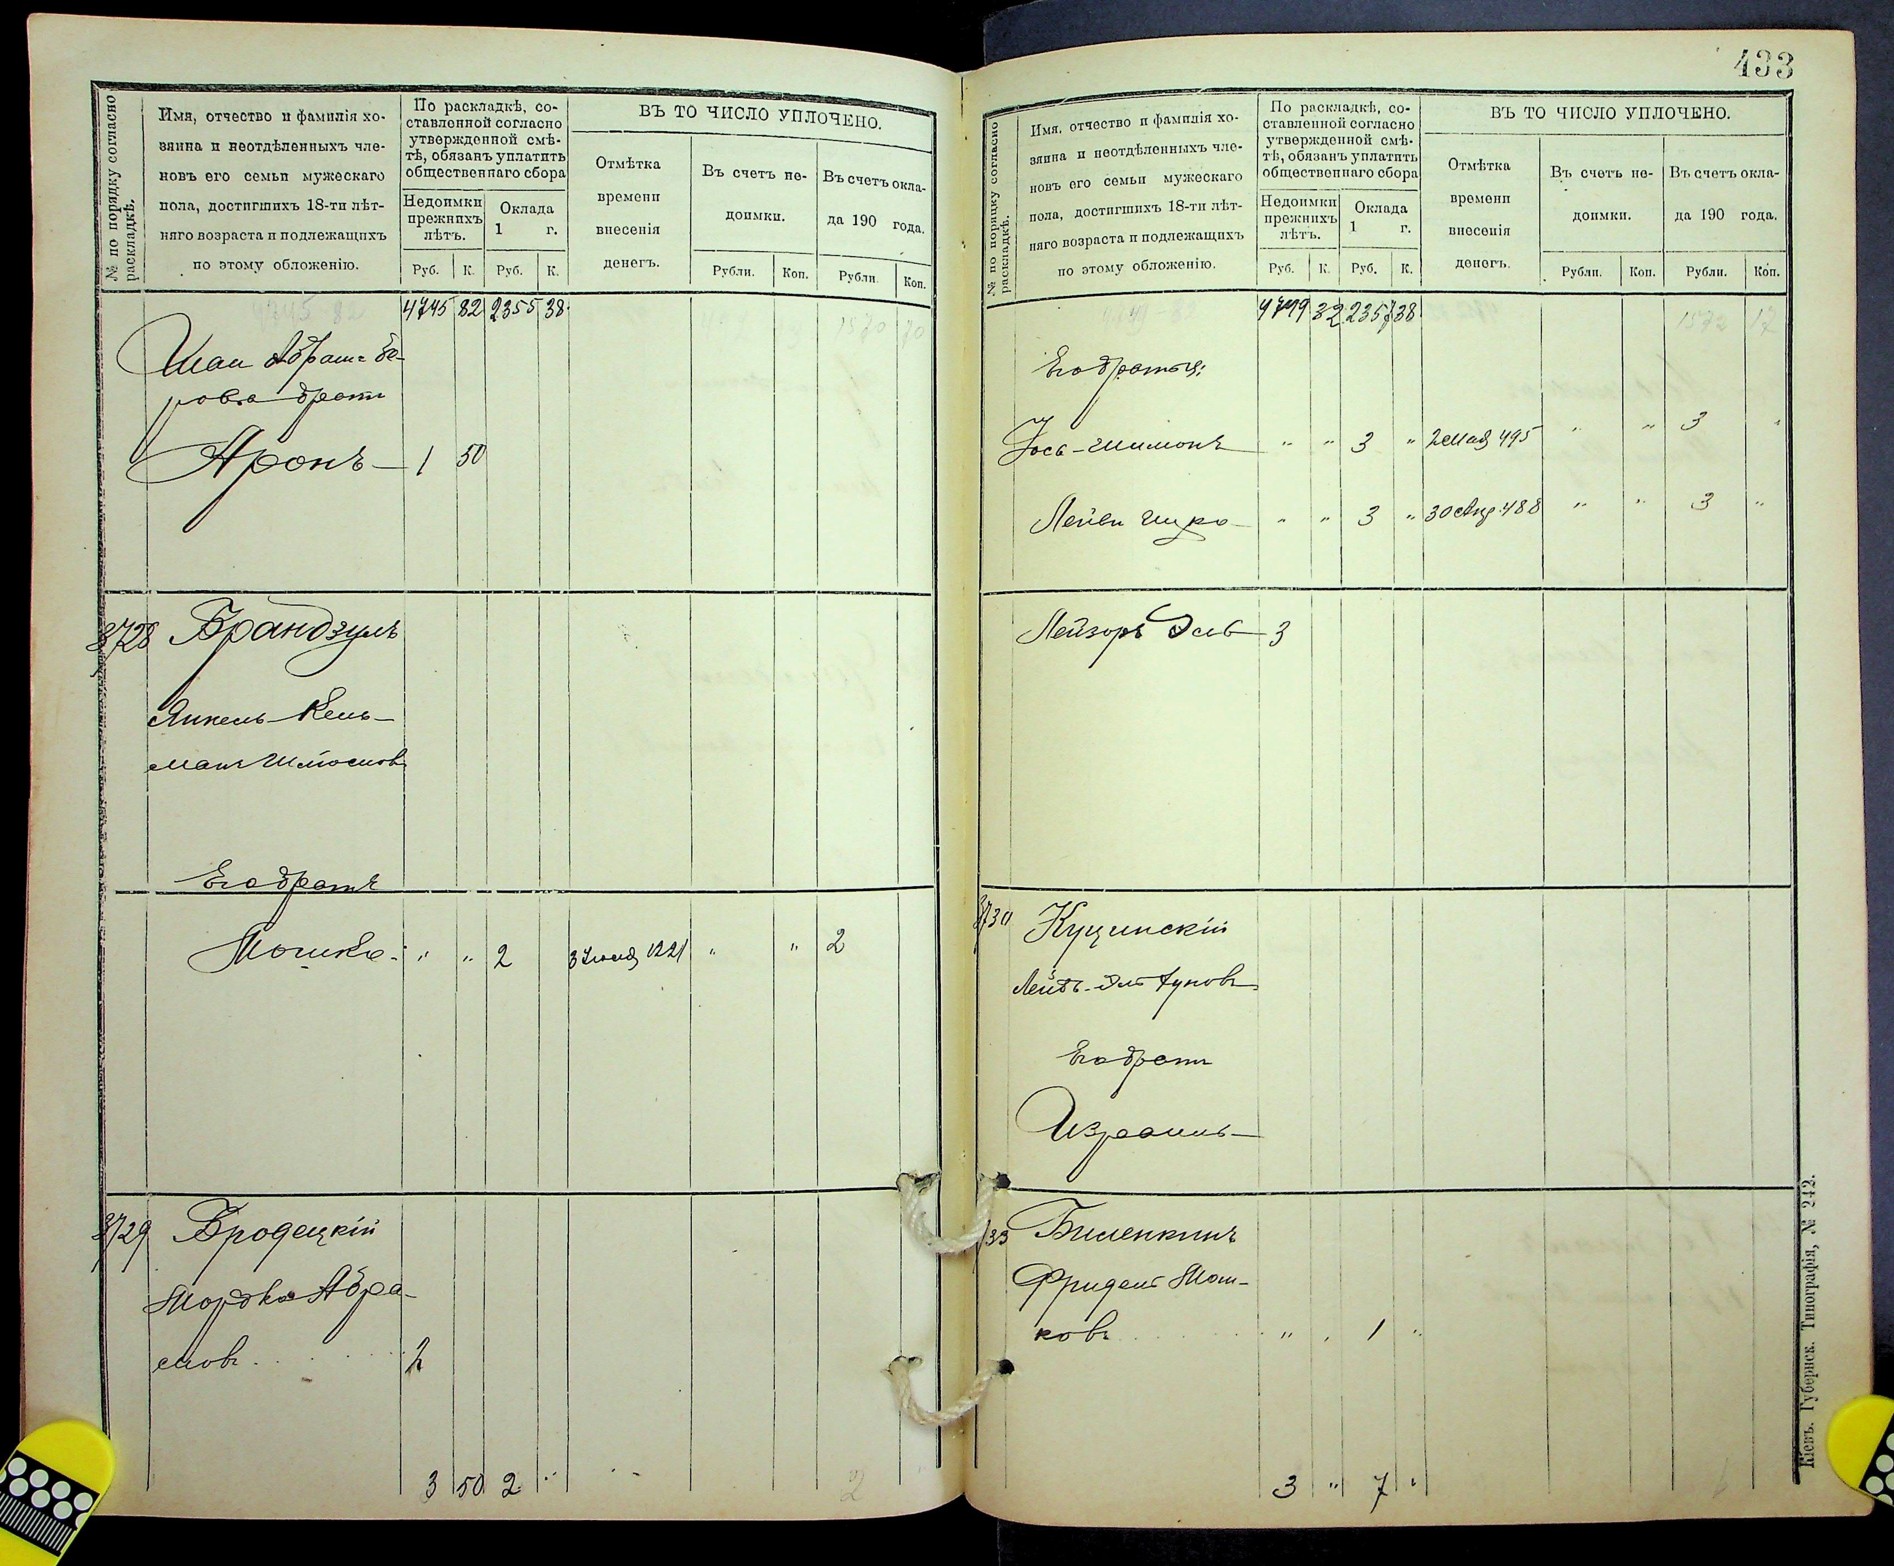 433
№ по порядку согласно раскладкѣ.
Имя, отчество и фамилія хо-
зяина и неотдѣленныхъ чле-
новъ его семьи мужескаго
пола, достигшихъ 18-ти лѣт-
няго возраста и подлежащихъ
по этому обложенію.
По раскладкѣ, со-
ставленной согласно
утвержденной смѣ-
тѣ, обязанъ уплатить
общественнаго сбора
Недоимки
прежнихъ
лѣтъ.
Оклада
1 г.
Руб. К. Руб. К.
ВЪ ТО ЧИСЛО УПЛОЧЕНО.
Отмѣтка
времени
внесенія
денегъ.
Въ счетъ не-
доимки.
Въ счетъ окла-
да 190 года.
Рубли. Коп. Рубли. Коп.
4745 82 2355 38
1570
Абрам Бе-
ровъ брат
Аронъ 1 50
3728 Брандзуль
Янкель-Кель-
манъ
Его братъ
Мошко " " 2 3 1221 " " 2
3729 Бродецкій
Мордко Абра-
мовъ 2
3 50 2 "
2
№ по порядку согласно раскладкѣ.
Имя, отчество и фамилія хо-
зяина и неотдѣленныхъ чле-
новъ его семьи мужескаго
пола, достигшихъ 18-ти лѣт-
няго возраста и подлежащихъ
по этому обложенію.
По раскладкѣ, со-
ставленной согласно
утвержденной смѣ-
тѣ, обязанъ уплатить
общественнаго сбора
Недоимки
прежнихъ
лѣтъ.
Оклада
1 г.
Руб. К. Руб. К.
ВЪ ТО ЧИСЛО УПЛОЧЕНО.
Отмѣтка
времени
внесенія
денегъ.
Въ счетъ не-
доимки.
Въ счетъ окла-
да 190 года.
Рубли. Коп. Рубли. Коп.
4749 32 2357 38
1572 17
Его братья:
Іось-Шимонъ " " 3 " 2 мая 495 " " 3 "
Лейви Ицко " " 3 " 30 Апр 488 " " 3 "
Лейзоръ 3
3730 Куцинскій
Его брат
Израиль
Биленкинъ
Фридель Мош-
ковъ " 1 "
3 " 7 "
Кіевъ. Губернск. Типографія, № 242.